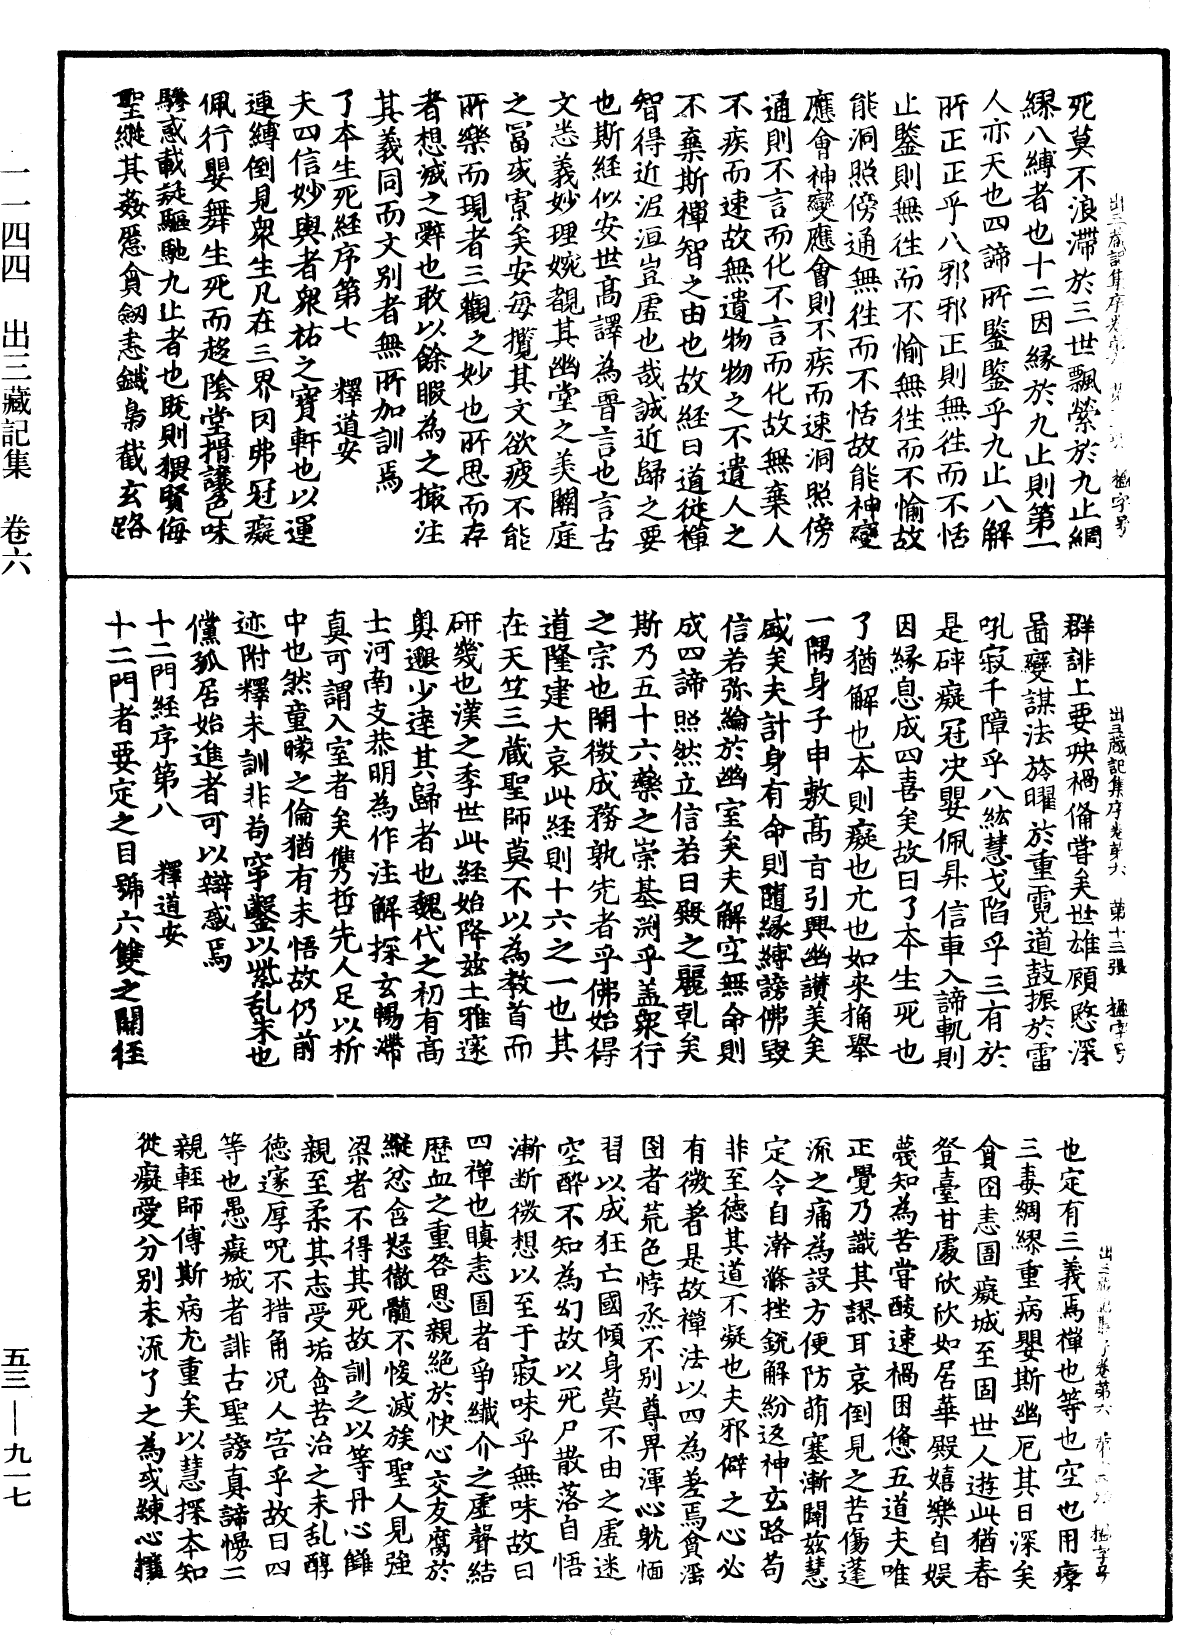 一一四四　出三藏記集　卷六
五三—九一七
死莫不浪滯於三世飄縈於九止綢
繆八縛者也十二因縁於九止則第一
人亦天也四諦所鑒鑒乎九止八解
所正正乎八邪邪正則無往而不恬
止鑒則無往而不愉無往而不愉故
能洞照傍通無往而不恬故能神變
應會神變應會則不疾而速洞照傍
通則不言而化不言而化故無棄人
不疾而速故無遺物物之不遺人之
不棄斯禪智之由也故經曰道從禪
智得近泥洹豈虛也哉誠近歸之要
也斯經似安世高譯為晉言也言古
文悉義妙理婉覩其幽堂之美闕庭
之富或寡矣安每攬其文欲疲不能
所樂而現者三觀之妙也所思而存
者想滅之辭也敢以餘暇為之撮注
其義同而文别者無所加訓焉
了本生死經序第七　釋道安
夫四信妙輿者衆祐之寶軒也以運
連縛倒見衆生凡在三界罔弗冠癡
佩行嬰舞生死而趍陰堂揖讓色味
驂惑載疑驅馳九止者也既則狎賢侮
聖縱其姦慝貪劒恚鐵梟截玄路
出三藏記集序卷第六　第十三張　楹字号
群誹上要殃禍備嘗矣世雄願愍深
啚變謀法旍曜於重霓道鼓振於雷
吼寂千障乎八紘慧戈陷乎三有於
是碎癡冠决嬰佩昇信車入諦軌則
因縁息成四喜矣故曰了本生死也
了猶解也本則癡也亢也如來捔舉
一隅身子申敷高音引興幽讃美矣
盛矣夫計身有命則隨縁縛謗佛毀
信若弥綸於幽室矣夫解空無命則
成四諦照然立信若日殿之麗乹矣
斯乃五十六藥之崇基淵乎蓋衆行
之宗也開微成務孰先者乎佛始得
道隆建大哀此經則十六之一也其
在天竺三藏聖師莫不以為教首而
研幾也漢之季世此經始降兹土雅邃
奥邈少達其歸者也魏代之初有高
士河南支恭明為作注解探玄暢滯
真可謂入室者矣儁哲先人足以析
中也然童矇之倫猶有未悟故仍前
迹附釋未訓非苟穿鑿以紫乱朱也
儻孤居始進者可以辯惑焉
十二門經序第八　釋道安
十二門者要定之目號六雙之關徑
也定有三義焉禪也等也空也用療
三毒綢繆重病嬰斯幽厄其日深矣
貪囹恚圄癡城至固世人遊此猶春
登臺甘處欣欣如居華殿嬉樂自娱
蔑知為苦嘗酸速禍困憊五道夫唯
正覺乃識其謬耳哀倒見之苦傷蓬
流之痛為設方便防萌塞漸闢兹慧
定令自澣滌挫銳解紛返神玄路苟
非至德其道不凝也夫邪僻之心必
有微著是故禪法以四為差焉貪淫
囹者荒色悖烝不别尊卑渾心躭愐
習以成狂亡國傾身莫不由之虛迷
空醉不知為幻故以死尸散落自悟
漸断微想以至于寂味乎無味故曰
四禪也瞋恚圄者爭纎介之虛聲結
歷血之重咎恩親絶於快心交友腐於
縱忿含怒徹髓不悛滅族聖人見強
梁者不得其死故訓之以等丹心讎
親至柔其志受垢含苦治之未乱醇
德邃厚咒不措角况人害乎故曰四
等也愚癡城者誹古聖謗真諦慢二
親輕師傅斯病尤重矣以慧探本知
從癡愛分别末流了之為或練心擯